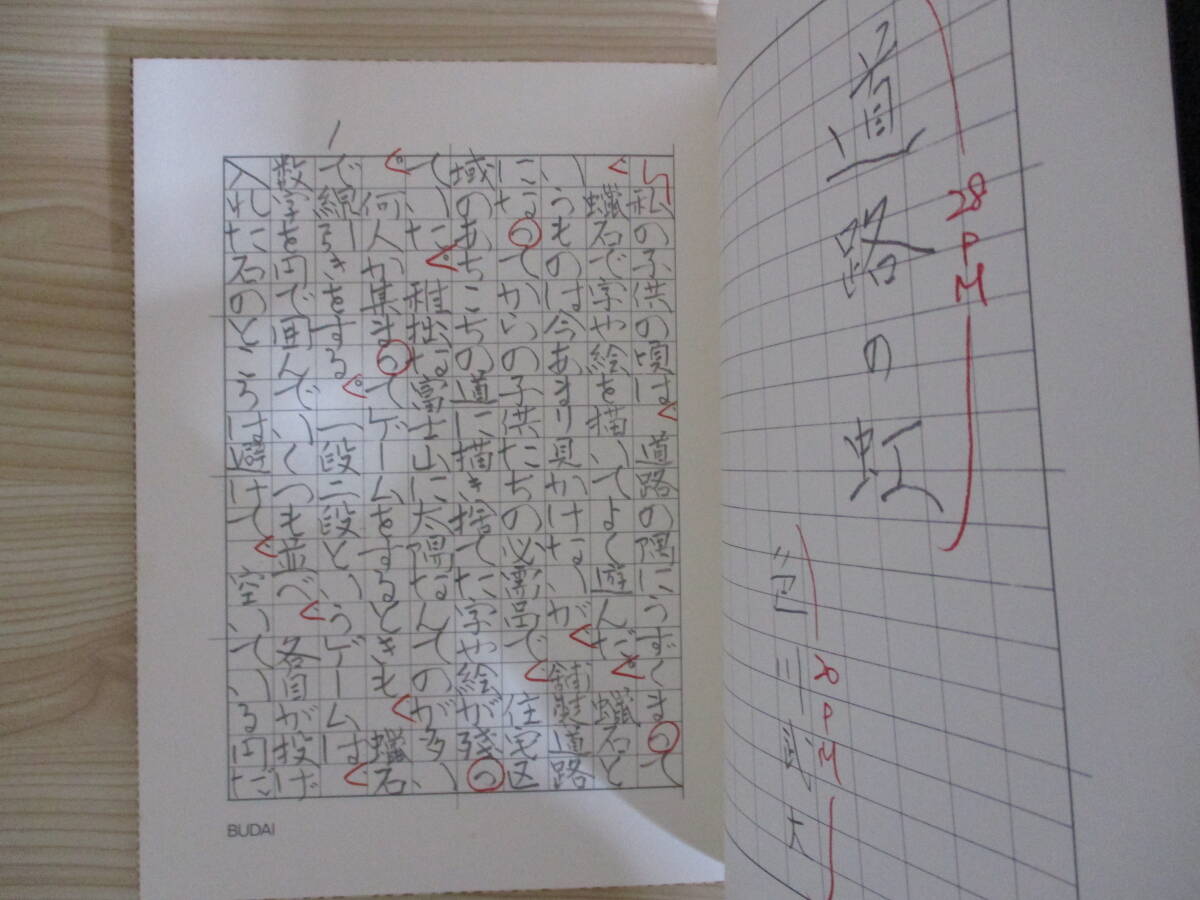 道路の虹
28PM
8PM
1
私の子供の頃は、道路の隅にうずくまって
、蠟石で字や絵を描いてよく遊んだ。蠟石と
いうものは今あまり見かけないが、舗装道路
になってからの子供たちの必需品で、住宅区
域のあちこちの道に描き捨てた字や絵が残っ
ていた。稚拙な富士山に太陽なんてのが多い
。何人か集まってゲームをするときも、蠟石
で線引きをする。一段二段というゲームは、
数字を円で囲んでいくつも並べ、各自が投げ
入れた石のところは避けて、空いている円だ
BUDAI